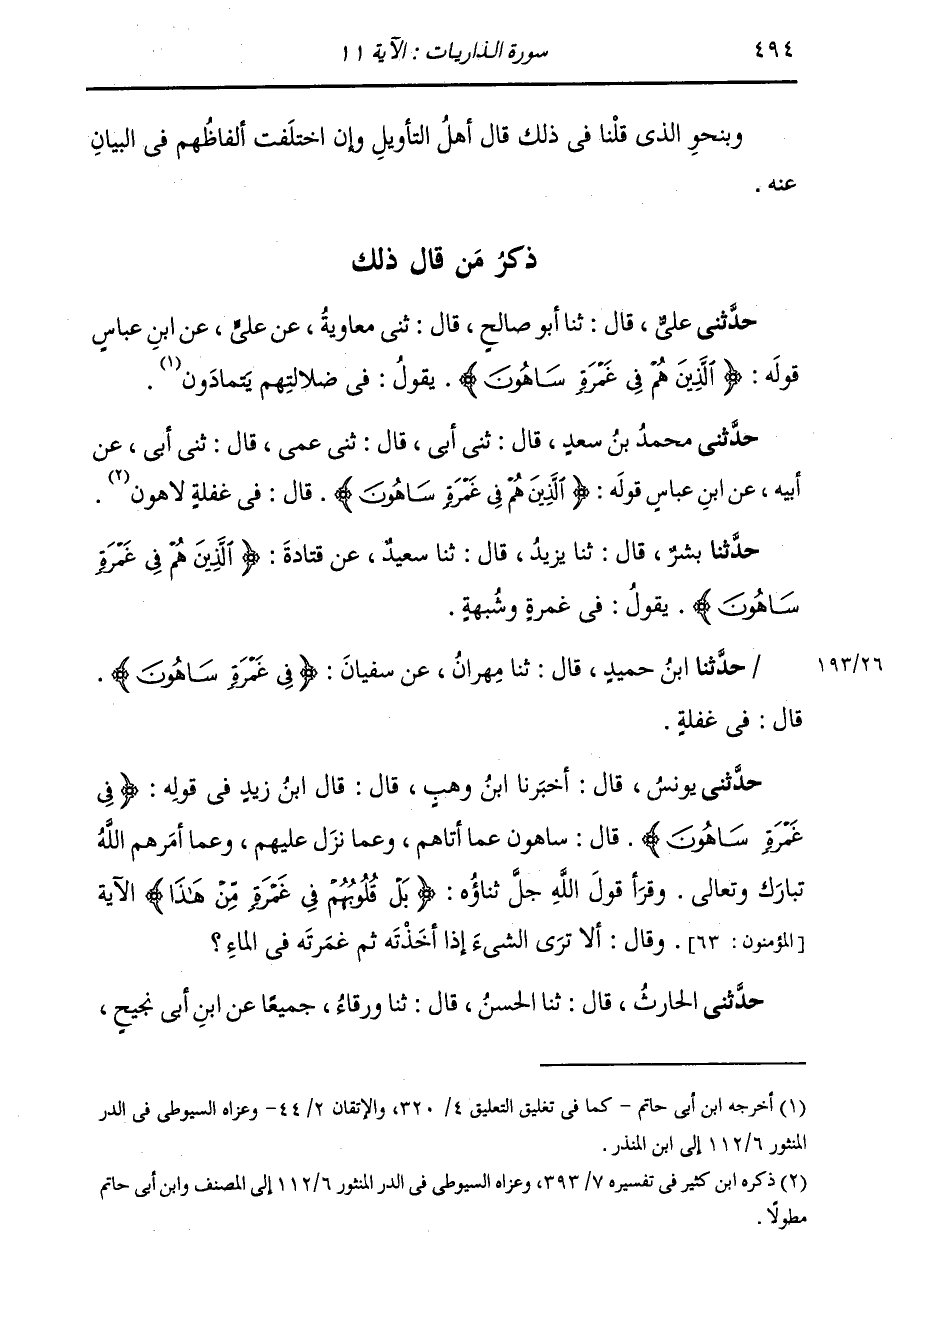 ٤٩٤ سورة الذاريات : الآية ١١
وبنحوِ الذى قلْنا فى ذلك قال أهلُ التأويلِ وإن اختلَفت ألفاظُهم فى البيانِ
عنه .
ذكرُ مَن قال ذلك
حدَّثنى علىٌّ ، قال : ثنا أبو صالحٍ ، قال : ثنى معاويةُ ، عن علىٍّ ، عن ابنِ عباسٍ
قولَه : ﴿ ٱلَّذِينَ هُمْ فِى غَمْرَةٍ سَاهُونَ ﴾ . يقولُ : فى ضلالتِهم يَتمادَون(١) .
حدَّثنى محمدُ بنُ سعدٍ ، قال : ثنى أبى ، قال : ثنى عمى ، قال : ثنى أبى ، عن
أبيه ، عن ابنِ عباسٍ قولَه : ﴿ ٱلَّذِينَ هُمْ فِى غَمْرَةٍ سَاهُونَ ﴾ . قال : فى غفلةٍ لاهون(٢) .
حدَّثنا بشرٌ ، قال : ثنا يزيدُ ، قال : ثنا سعيدٌ ، عن قتادةَ : ﴿ ٱلَّذِينَ هُمْ فِى غَمْرَةٍ
سَاهُونَ ﴾ . يقولُ : فى غمرةٍ وشُبهةٍ .
١٩٣/٢٦ / حدَّثنا ابنُ حميدٍ ، قال : ثنا مِهرانُ ، عن سفيانَ : ﴿ فِى غَمْرَةٍ سَاهُونَ ﴾ .
قال : فى غفلةٍ .
حدَّثنى يونسُ ، قال : أخبَرنا ابنُ وهبٍ ، قال : قال ابنُ زيدٍ فى قولِه : ﴿ فِى
غَمْرَةٍ سَاهُونَ ﴾ . قال : ساهون عما أتاهم ، وعما نزَل عليهم ، وعما أمَرهم اللَّهُ
تبارَك وتعالى . وقرَأ قولَ اللَّهِ جلَّ ثناؤُه : ﴿ بَلْ قُلُوبُهُمْ فِى غَمْرَةٍ مِّنْ هَٰذَا ﴾ الآية
[المؤمنون : ٦٣] . وقال : ألا ترَى الشىءَ إذا أخَذْتَه ثم غمَرتَه فى الماءِ ؟
حدَّثنى الحارثُ ، قال : ثنا الحسنُ ، قال : ثنا ورقاءُ ، جميعًا عن ابنِ أبى نجيحٍ ،
(١) أخرجه ابن أبى حاتم - كما فى تغليق التعليق ٤/ ٣٢٠، والإتقان ٢/ ٤٤- وعزاه السيوطى فى الدر
المنثور ١١٢/٦ إلى ابن المنذر .
(٢) ذكره ابن كثير فى تفسيره ٧/ ٣٩٣، وعزاه السيوطى فى الدر المنثور ١١٢/٦ إلى المصنف وابن أبى حاتم
مطولًا .